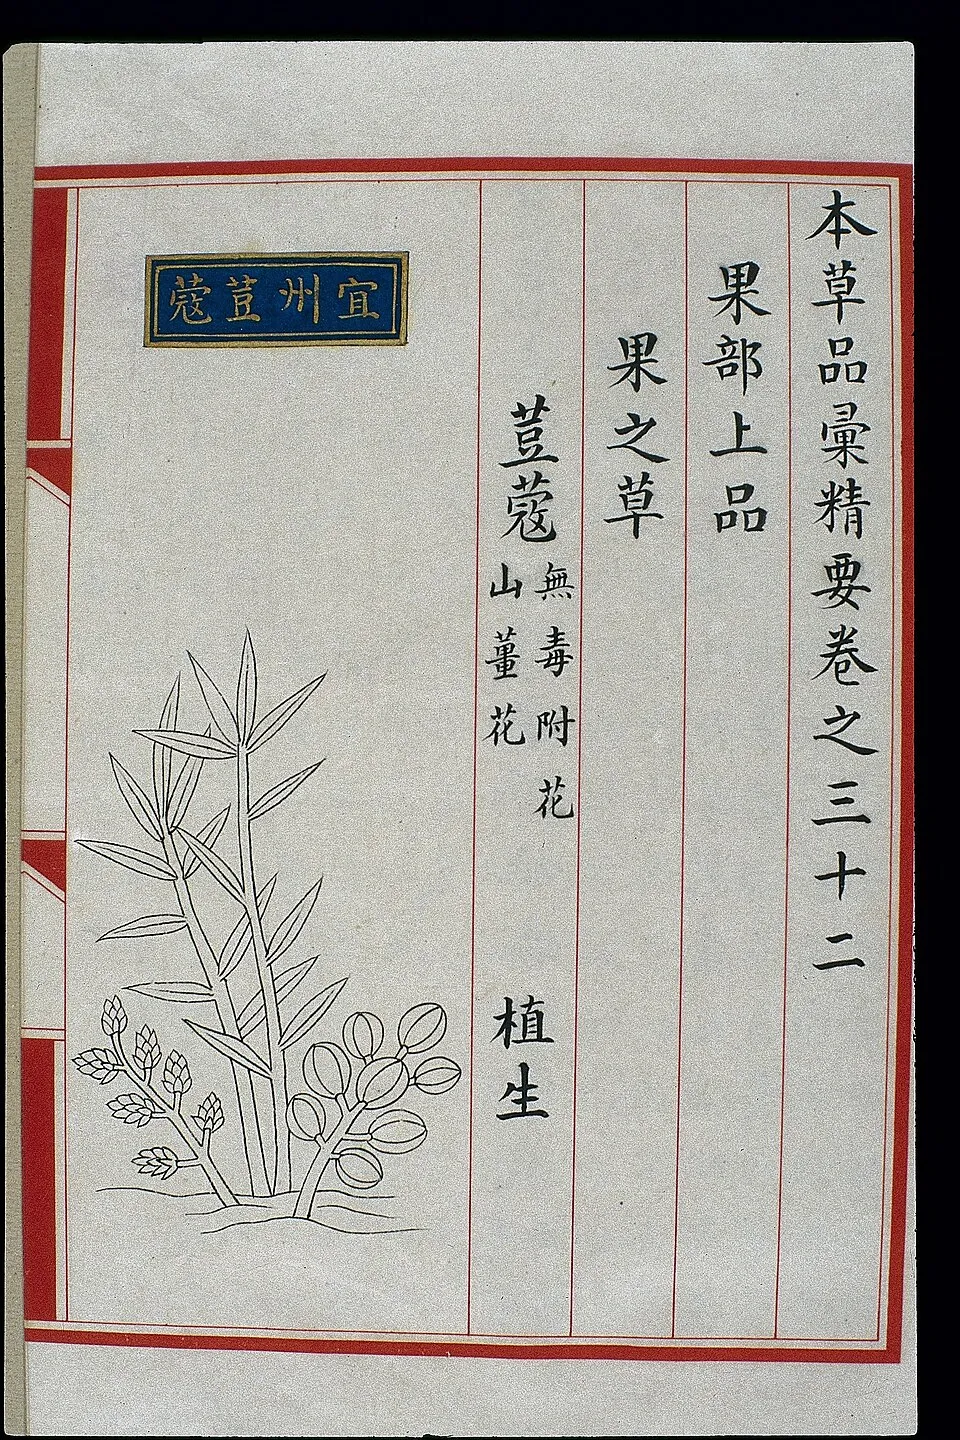 本草品彙精要卷之三十二
果部上品
果之草
荳蔻 無毒附花山薑花 植生
宜州荳蔻